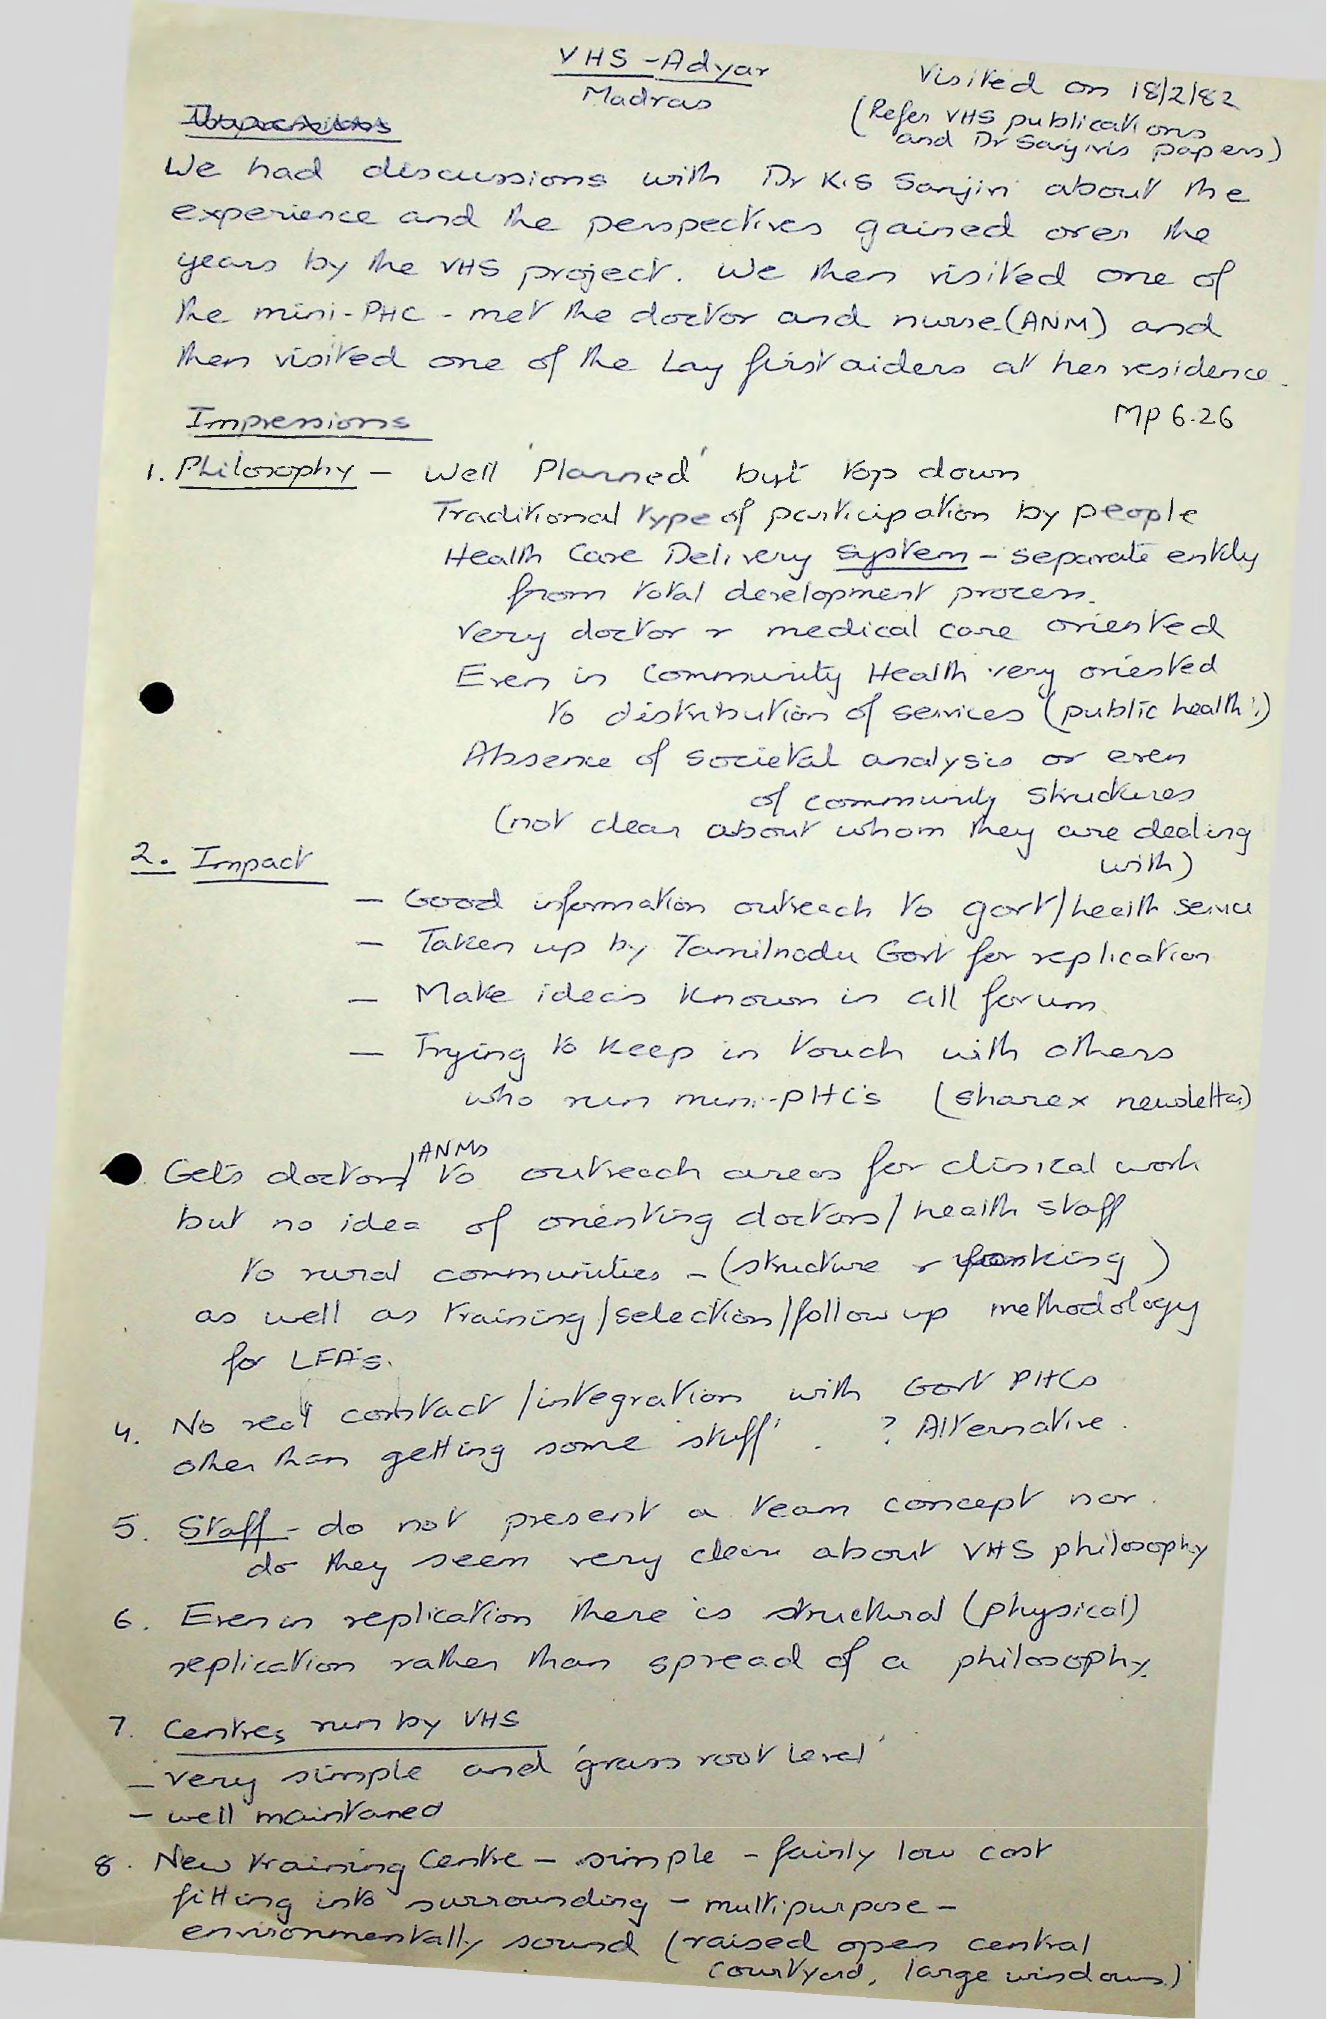 VHS - Adyar
Madras
Visited on 18/2/82
(Refer VHS publications
and Dr Sanjivis papers)
Impressions
We had discussions with Dr K.S Sanjivi about the
experience and the perspectives gained over the
years by the VHS project. We then visited one of
the mini-PHC - met the doctor and nurse (ANM) and
then visited one of the Lay first aiders at her residence.
MP 6.26
Impressions
1. Philosophy - Well 'Planned' but top down
Traditional type of participation by people
Health Care Delivery System - separate entity
from total development process.
Very doctor & medical care oriented
Even in Community Health very oriented
to distribution of services (public health!)
Absence of societal analysis or even
of community structures
(not clear about whom they are dealing
with)
2. Impact
- Good information outreach to govt/health service
- Taken up by Tamilnadu Govt for replication
- Make ideas known in all forum
- Trying to keep in touch with others
who run mini-PHC's (share x newsletter)
Gets doctors, ANMs to outreach areas for clinical work
but no idea of orienting doctors/health staff
to rural communities - (structure &
as well as training/selection/follow up methodology
for LFA's.
4. No real contact/integration with Govt PHCs
other than getting some 'stuff'. ? Alternative.
5. Staff - do not present a team concept nor
do they seem very clear about VHS philosophy
6. Even in replication there is structural (physical)
replication rather than spread of a philosophy.
7. Centres run by VHS
- very simple and 'grass root level'
- well maintaned
8. New training Centre - simple - fairly low cost
fitting into surrounding - multipurpose -
environmentally sound (raised open central
courtyard, large windows)